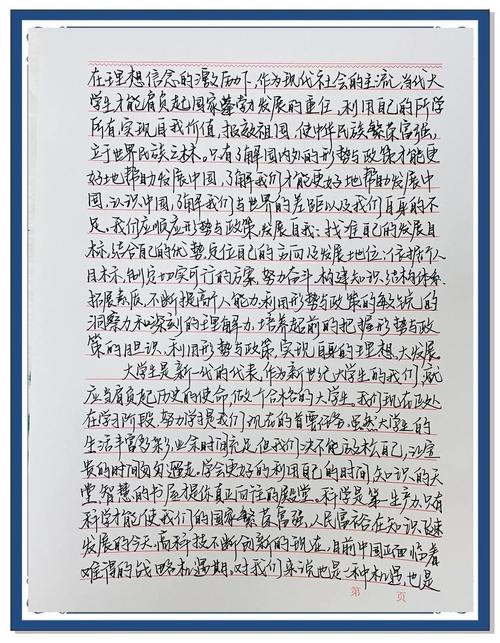 在理想信念的激励下,作为现代社会的主流,当代大
学生才能肩负起国家蓬勃发展的重任,利用自己的所学
所有,实现自我价值,报效祖国,使中华民族繁荣富强,
立于世界民族之林。只有了解国内外的形势与政策才能更
好地帮助发展中国,了解我们才能更好地帮助发展中
国,认识中国,了解我们与世界的差距以及我们自身的不
足。我们应顺应形势与政策,发展自我:找准自己的发展目
标,结合自己的优势,定位自己的方向及发展地位;依据个人
目标,制定切实可行的方案,努力奋斗,构建知识结构体系,
拓展素质,不断提高个人能力,利用形势与政策的敏锐的
洞察力和深刻的理解力,培养超前的把握形势与政
策的胆识,利用形势与政策,实现自身的理想,大发展。
大学生是新一代的代表,作为新世纪大学生的我们,就
应当肩负起历史的使命,做个合格的大学生。我们现在正处
在学习阶段,努力学习是我们现在的首要任务,虽然大学生的
生活丰富多彩,业余时间充足,但我们决不能放松自己,让宝
贵的时间匆匆溜走。学会更好的利用自己的时间,知识的天
堂,智慧的书屋,才是你真正向往的殿堂。科学是第一生产力,只有
科学才能使我们的国家繁荣富强,人民富裕,在知识飞速
发展的今天,高科技不断创新的现在,目前中国正面临着
难得的战略机遇期,对我们来说也是一种机遇,也是
第 页